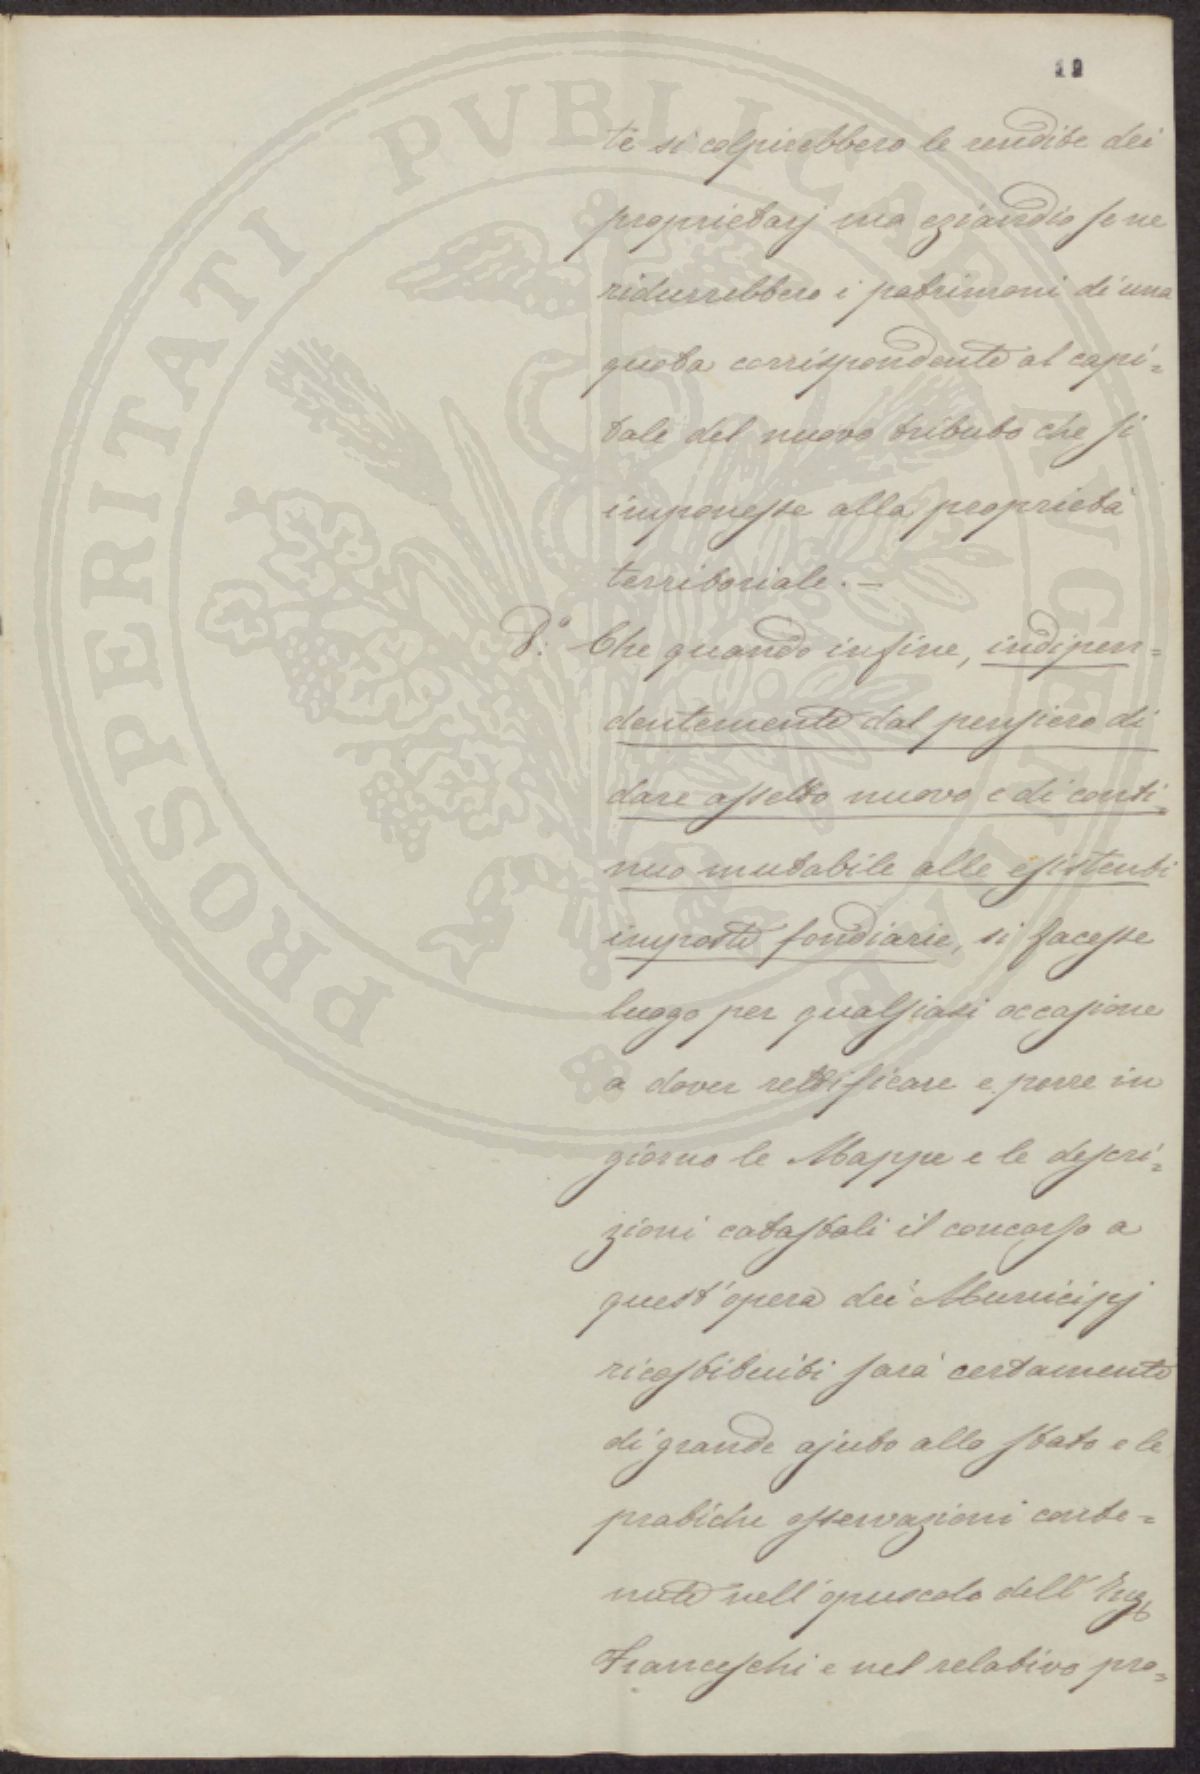 19
te si colpirebbero le rendite dei
proprietarj ma eziandio se ne
ridurrebbero i patrimoni di una
quota corrispondente al capi=
tale del nuovo tributo che si
imponesse alla proprietà
territoriale. —
Che quando infine, indipen=
dentemente dal pensiero di
dare assetto nuovo e di conti=
nuo mutabile alle esistenti
imposte fondiarie, si facesse
luogo per qualsiasi occasione
a dover rettificare e porre in
giorno le Mappe e le descri=
zioni catastali il concorso a
quest'opera dei Municipj
ricostituiti sarà certamente
di grande ajuto allo Stato e le
pratiche osservazioni conte=
nute nell'opuscolo dell'Ing
Franceschi e nel relativo pro=
PROSPERITATI PVBLICAE AVGENDAE